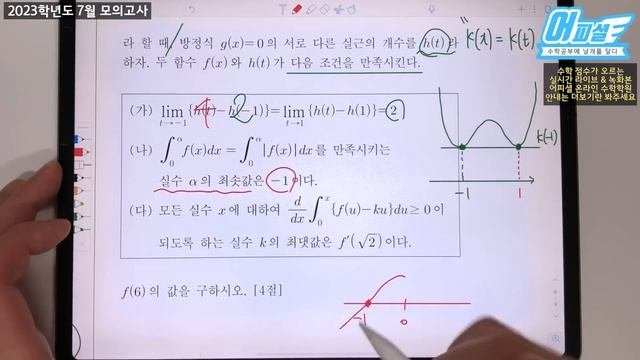 2023학년도 7월 모의고사
라 할 때, 방정식 g(x)=0의 서로 다른 실근의 개수를 h(t)라
하자. 두 함수 f(x)와 h(t)가 다음 조건을 만족시킨다.
" k(x) = k(t)
어피셜
수학공부에 날개를 달다
수학 점수가 오르는
실시간 라이브 & 녹화본
어피셜 온라인 수학학원
안내는 더보기란 봐주세요
(가) lim t→-1 {h(t)-h(-1)}=lim t→1 {h(t)-h(1)}=2
4 2
(나) ∫₀^α f(x)dx=∫₀^α |f(x)|dx를 만족시키는
실수 α의 최솟값은 -1이다.
(다) 모든 실수 x에 대하여 d/dx ∫₀^x {f(u)-ku}du≥0이
되도록 하는 실수 k의 최댓값은 f′(√2)이다.
k(-1)
-1 1
f(6)의 값을 구하시오. [4점]
-1 0